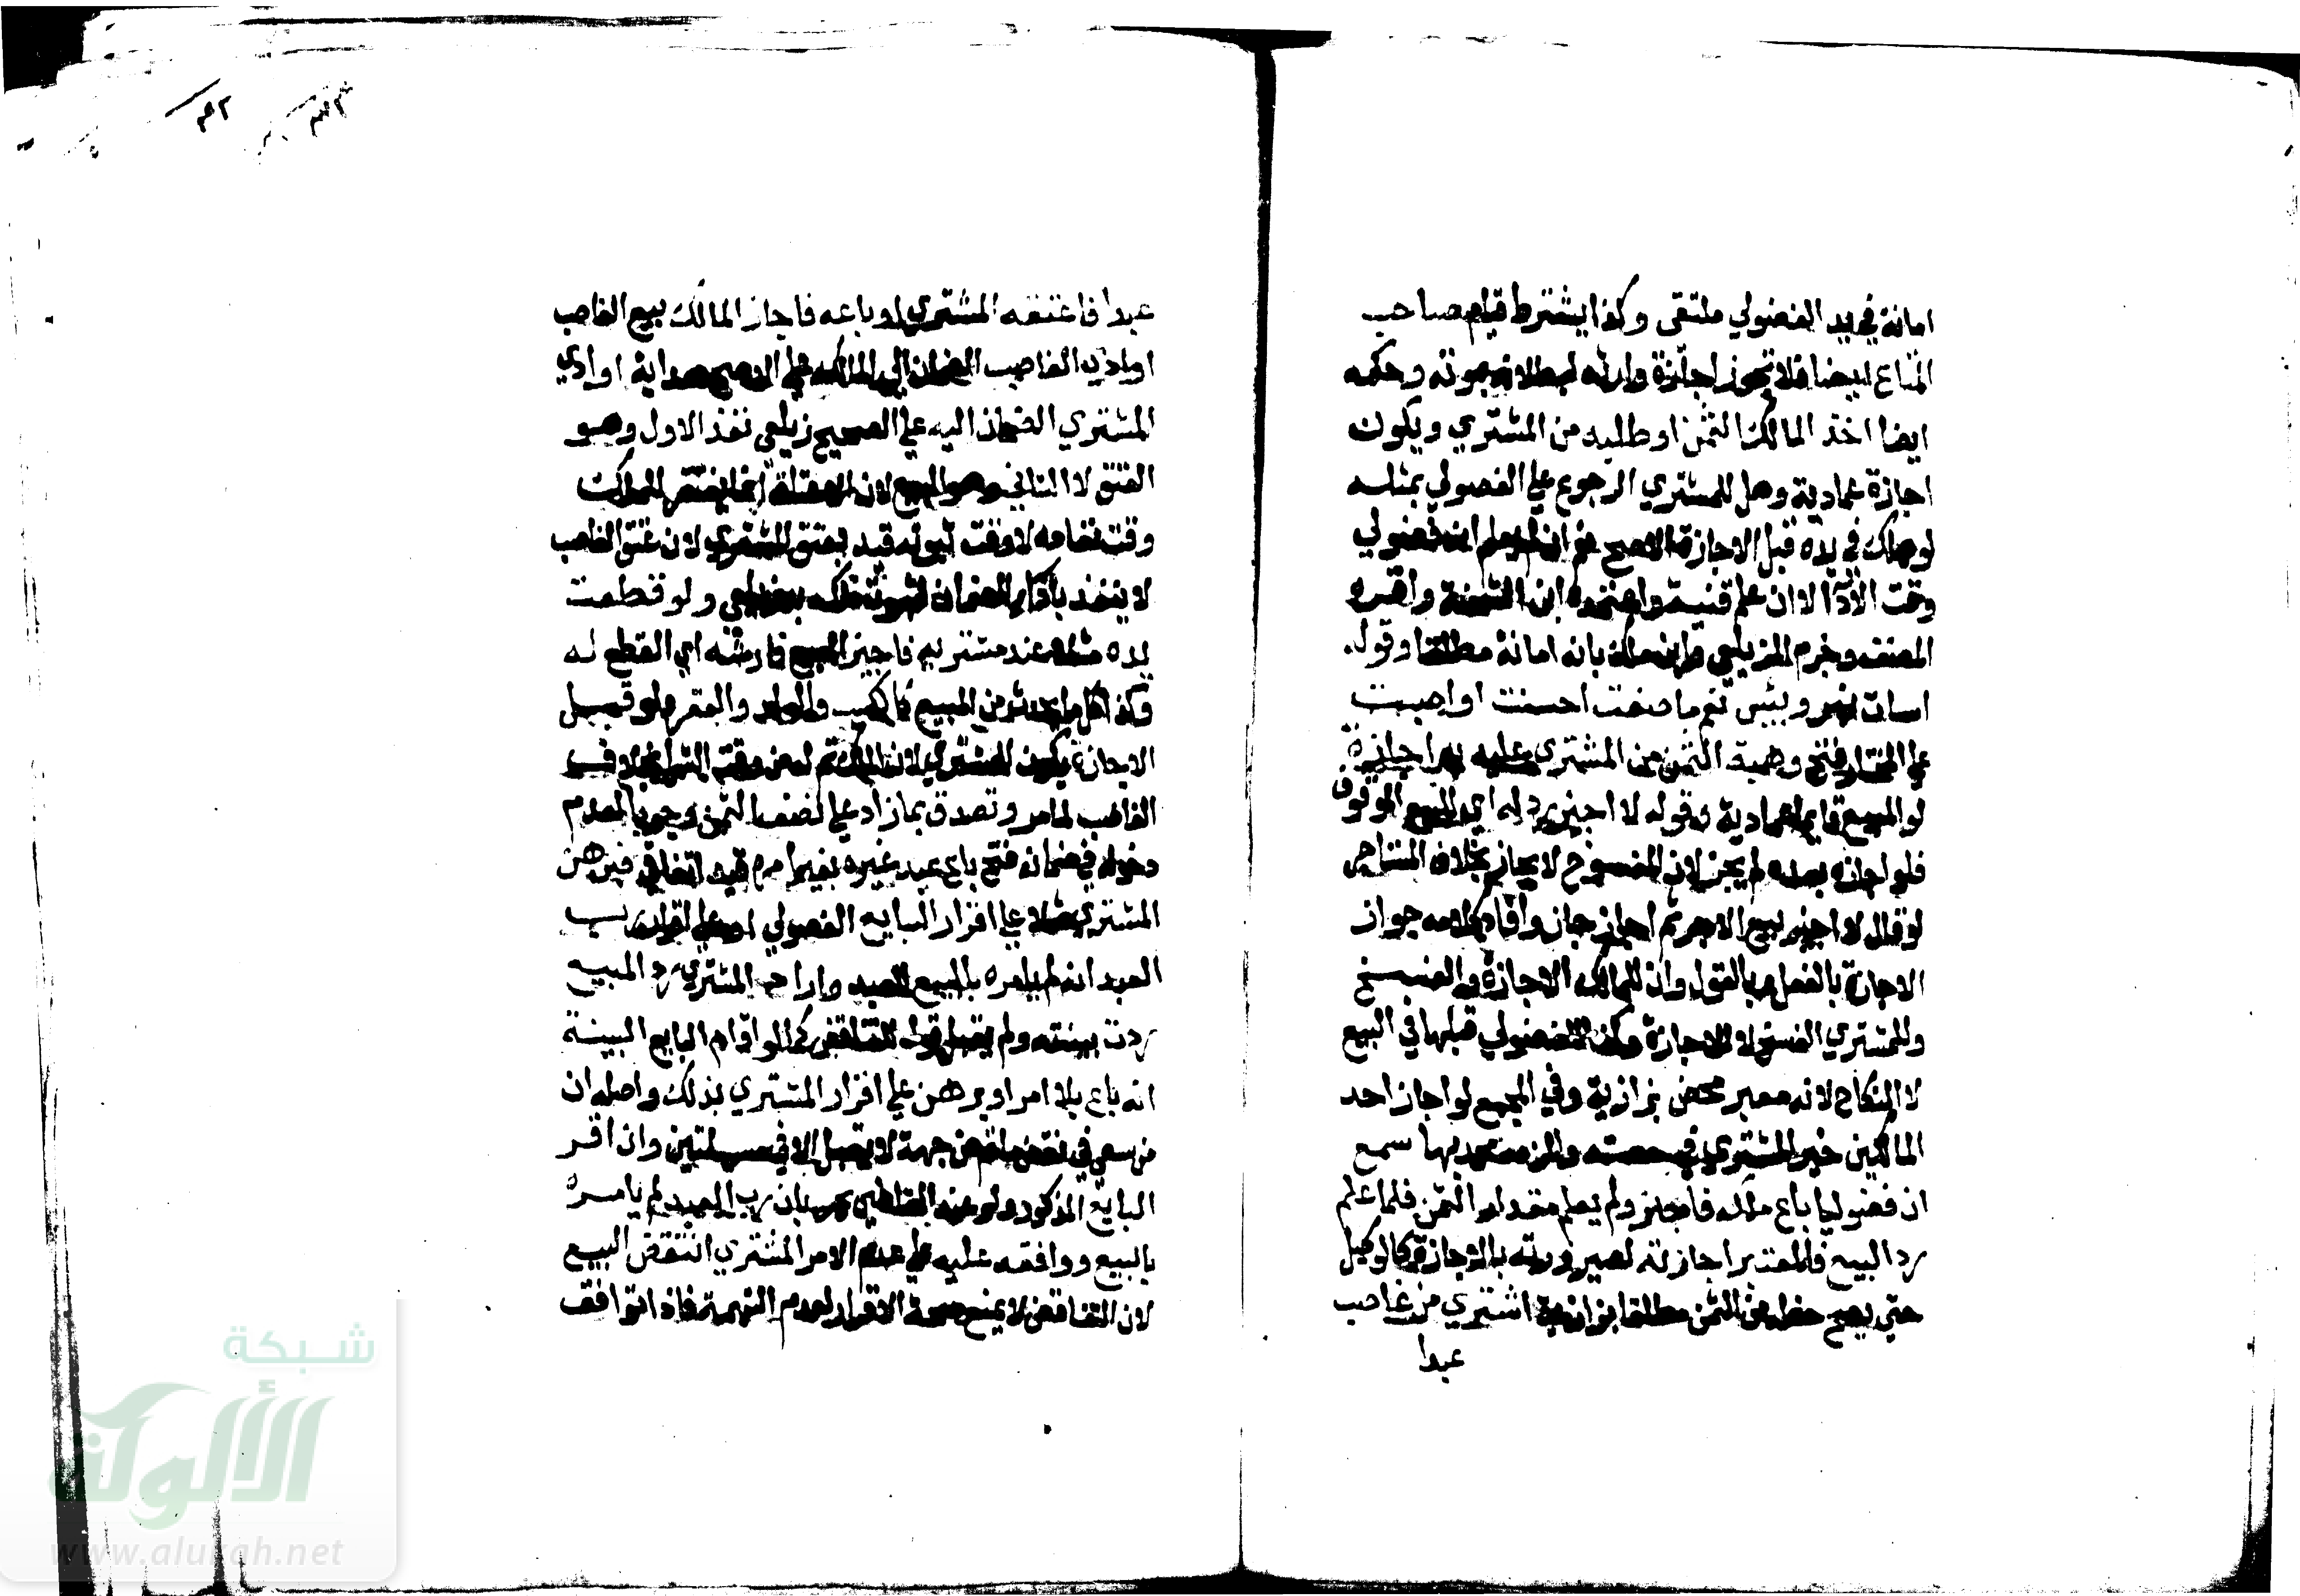 امانة في يد الفضولي ملتقى وكذا يشترط قيام صاحب
المتاع ايضا فلا تجوز اجازة وارثه لبطلانه بموته وحكمه
ايضا اخذ المالك الثمن او طلبه من المشتري ويكون
اجازة عمادية وهل للمشتري الرجوع علي الفضولي بمثله
لو هلك في يده قبل الاجازة الاصح نعم ان لم يعلم انه فضولي
وقت الاداء لا ان علم قنية واعتمده ابن الشحنة واقره
المصنف وجزم الزيلعي وابن ملك بانه امانة مطلقا وقوله
اسات نهر وبئس نعم ما صنعت احسنت او اصبت
علي المختار فتح وهبة الثمن من المشتري عليه به اجازة
لو المبيع قايما عمادية وقوله لا اجيز رد له اي للبيع الموقوف
فلو اجازه بعده لم يجز لان المفسوخ لا يجاز بخلاف المستاجر
لو قال لا اجيز بيع الاجر ثم اجاز جاز وافاد كلامه جواز
الاجازة بالفعل وبالقول وان للمالك الاجازة والفسخ
وللمشتري الفسخ لا الاجازة وكذا للفضولي قبلها في البيع
لا النكاح لانه معبر محض بزازية وفي المجمع لو اجاز احد
المالكين خير المشتري في حصته والزمه محمد بها سمع
ان فضوليا باع ملكه فاجيز ولم يعلم مقدار الثمن فلما علم
رد البيع فالمعتبر اجازته لصيرورته بالاجازة كالوكيل
حتي يصح حطه من الثمن مطلقا بزازية اشتري من غاصب
عبدا
عبدا فاعتقه المشتري او باعه فاجاز المالك بيع الغاصب
او ادي الغاصب الضمان الي المالك علي الاصح هداية او ادي
المشتري الضمان اليه علي الصحيح زيلعي نفذ الاول وهو
العتق لا الثاني وهو البيع لان الاعتاق انما يفتقر للملك
وقت نفاذه لا وقت ثبوته قيد بعتق المشتري لان عتق الغاصب
لا ينفذ باداء الضمان لثبوت ملكه به زيلعي ولو قطعت
يده مثلا عند مشتريه فاجيز البيع فارشه اي القطع له
وكذا كل ما يحدث من المبيع كالكسب والولد والعقر ولو قبل
الاجازة يكون للمشتري لان الملك تم له من وقت الشراء بخلاف
الغاصب لما مر وتصدق بما زاد علي نصف الثمن وجوبا لعدم
دخوله في ضمانه فتح باع عبد غيره بغير امره قيد اتفاقي فبرهن
المشتري مثلا علي اقرار البايع الفضولي او علي اقرار رب
العبد انه لم يامره بالبيع للعبد واراد المشتري رد المبيع
ردت بينته ولم يقبل قوله للتناقض كما لو اقام البايع البينة
انه باع بلا امر او برهن علي اقرار المشتري بذلك واصله ان
من سعي في نقض ما تم من جهته لا يقبل الا في مسئلتين وان اقر
البايع المذكور ولو عند القاضي بان رب العبد لم يامره
بالبيع ووافقه عليه علي عدم الامر المشتري انتقض البيع
لان التناقض لا يمنع صحة الاقرار لعدم التهمة فاذا توافق
شبكة
الألوكة
www.alukah.net